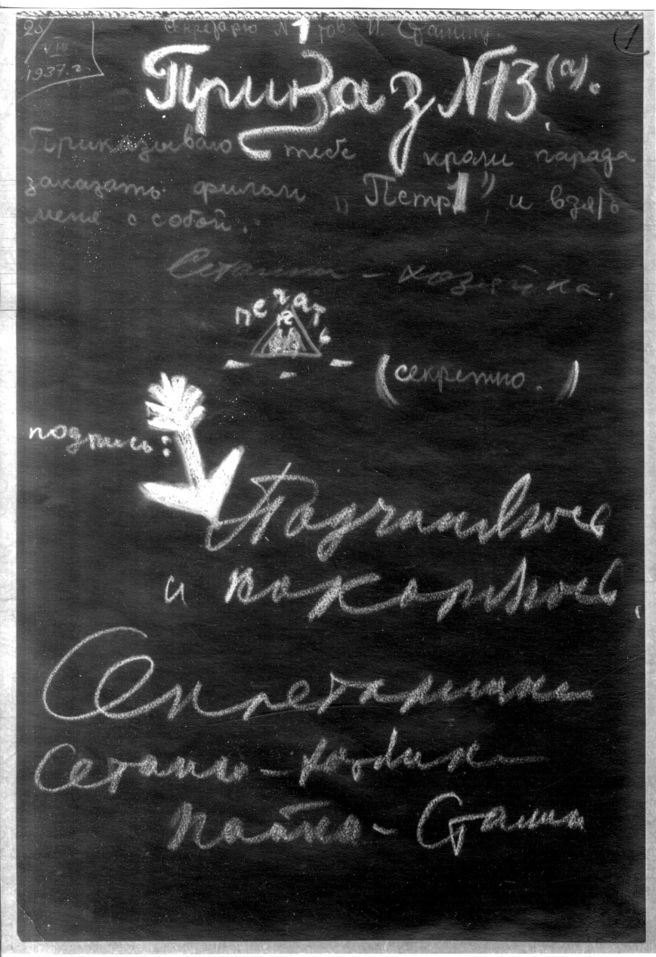 1
25/VII 1937 г.
Секретарю N 1 тов. И. Сталину.
Приказ N 13 (а).
Приказываю тебе кроме парада
заказать фильм „Петр 1" и взять
меня с собой.
Сетанка - хозяйка.
печать
(секретно.)
подпись:
Подчиняюсь
и покоряюсь.
Секретаришка
Сетанки-хозяйки
Сталин